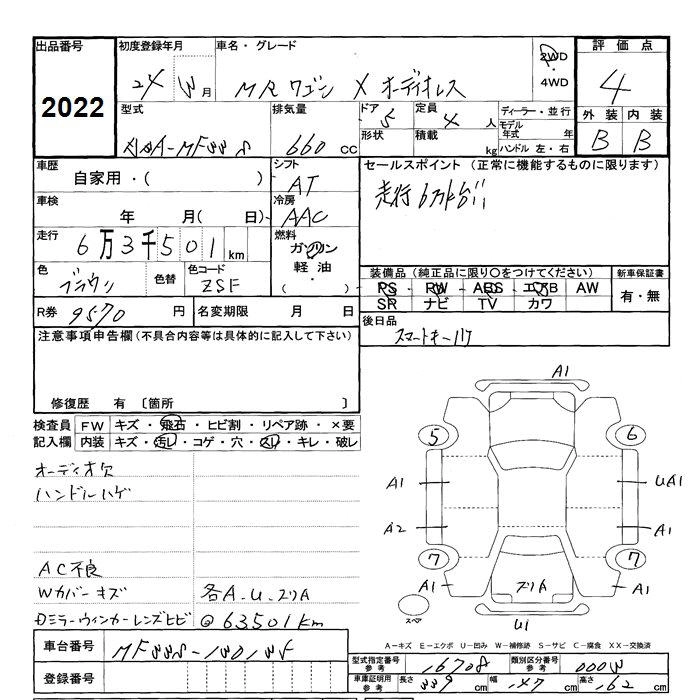 出品番号
2022
初度登録年月
24 月
車名・グレード
MRワゴン X オーディオレス
2WD
4WD
評価点
4
型式
排気量
660 cc
ドア 5
形状
定員 4 人
積載 kg
ディーラー・並行
モデル年式 年
ハンドル 左・右
外装 内装
B B
車歴
自家用・( )
シフト
AT
セールスポイント (正常に機能するものに限ります)
走行6万km台!!
車検
年 月( 日)
冷房
AAC
走行
6万3千501km
燃料
ガソリン
軽油
( )
色
ブラウン
色替
色コード
ZSF
装備品 (純正品に限り〇をつけてください)
PS・PW・ABS・エアB AW
SR ナビ TV カワ
新車保証書
有・無
R券 9570 円
名変期限 月 日
後日品
スマートキー1ケ
注意事項申告欄(不具合内容等は具体的に記入して下さい)
修復歴 有 〔箇所 〕
検査員記入欄
FW キズ・飛石・ヒビ割・リペア跡・×要
内装 キズ・汚し・コゲ・穴・スレ・キレ・破レ
オーディオ欠
ハンドルハゲ
AC不良
Wカバーキズ 各A.U.スリA
Dミラーウィンカーレンズヒビ @63501km
A1
5
6
A1
UA1
A2
A1
7
7
A1
スリA
A1
スペア
U1
A-キズ E-エクボ U-凹み W-補修跡 S-サビ C-腐食 XX-交換済
車台番号
登録番号
型式指定番号 参考 16708
類別区分番号 参考
車庫証明用 参考 長さ 339 cm 幅 147 cm 高さ 162 cm